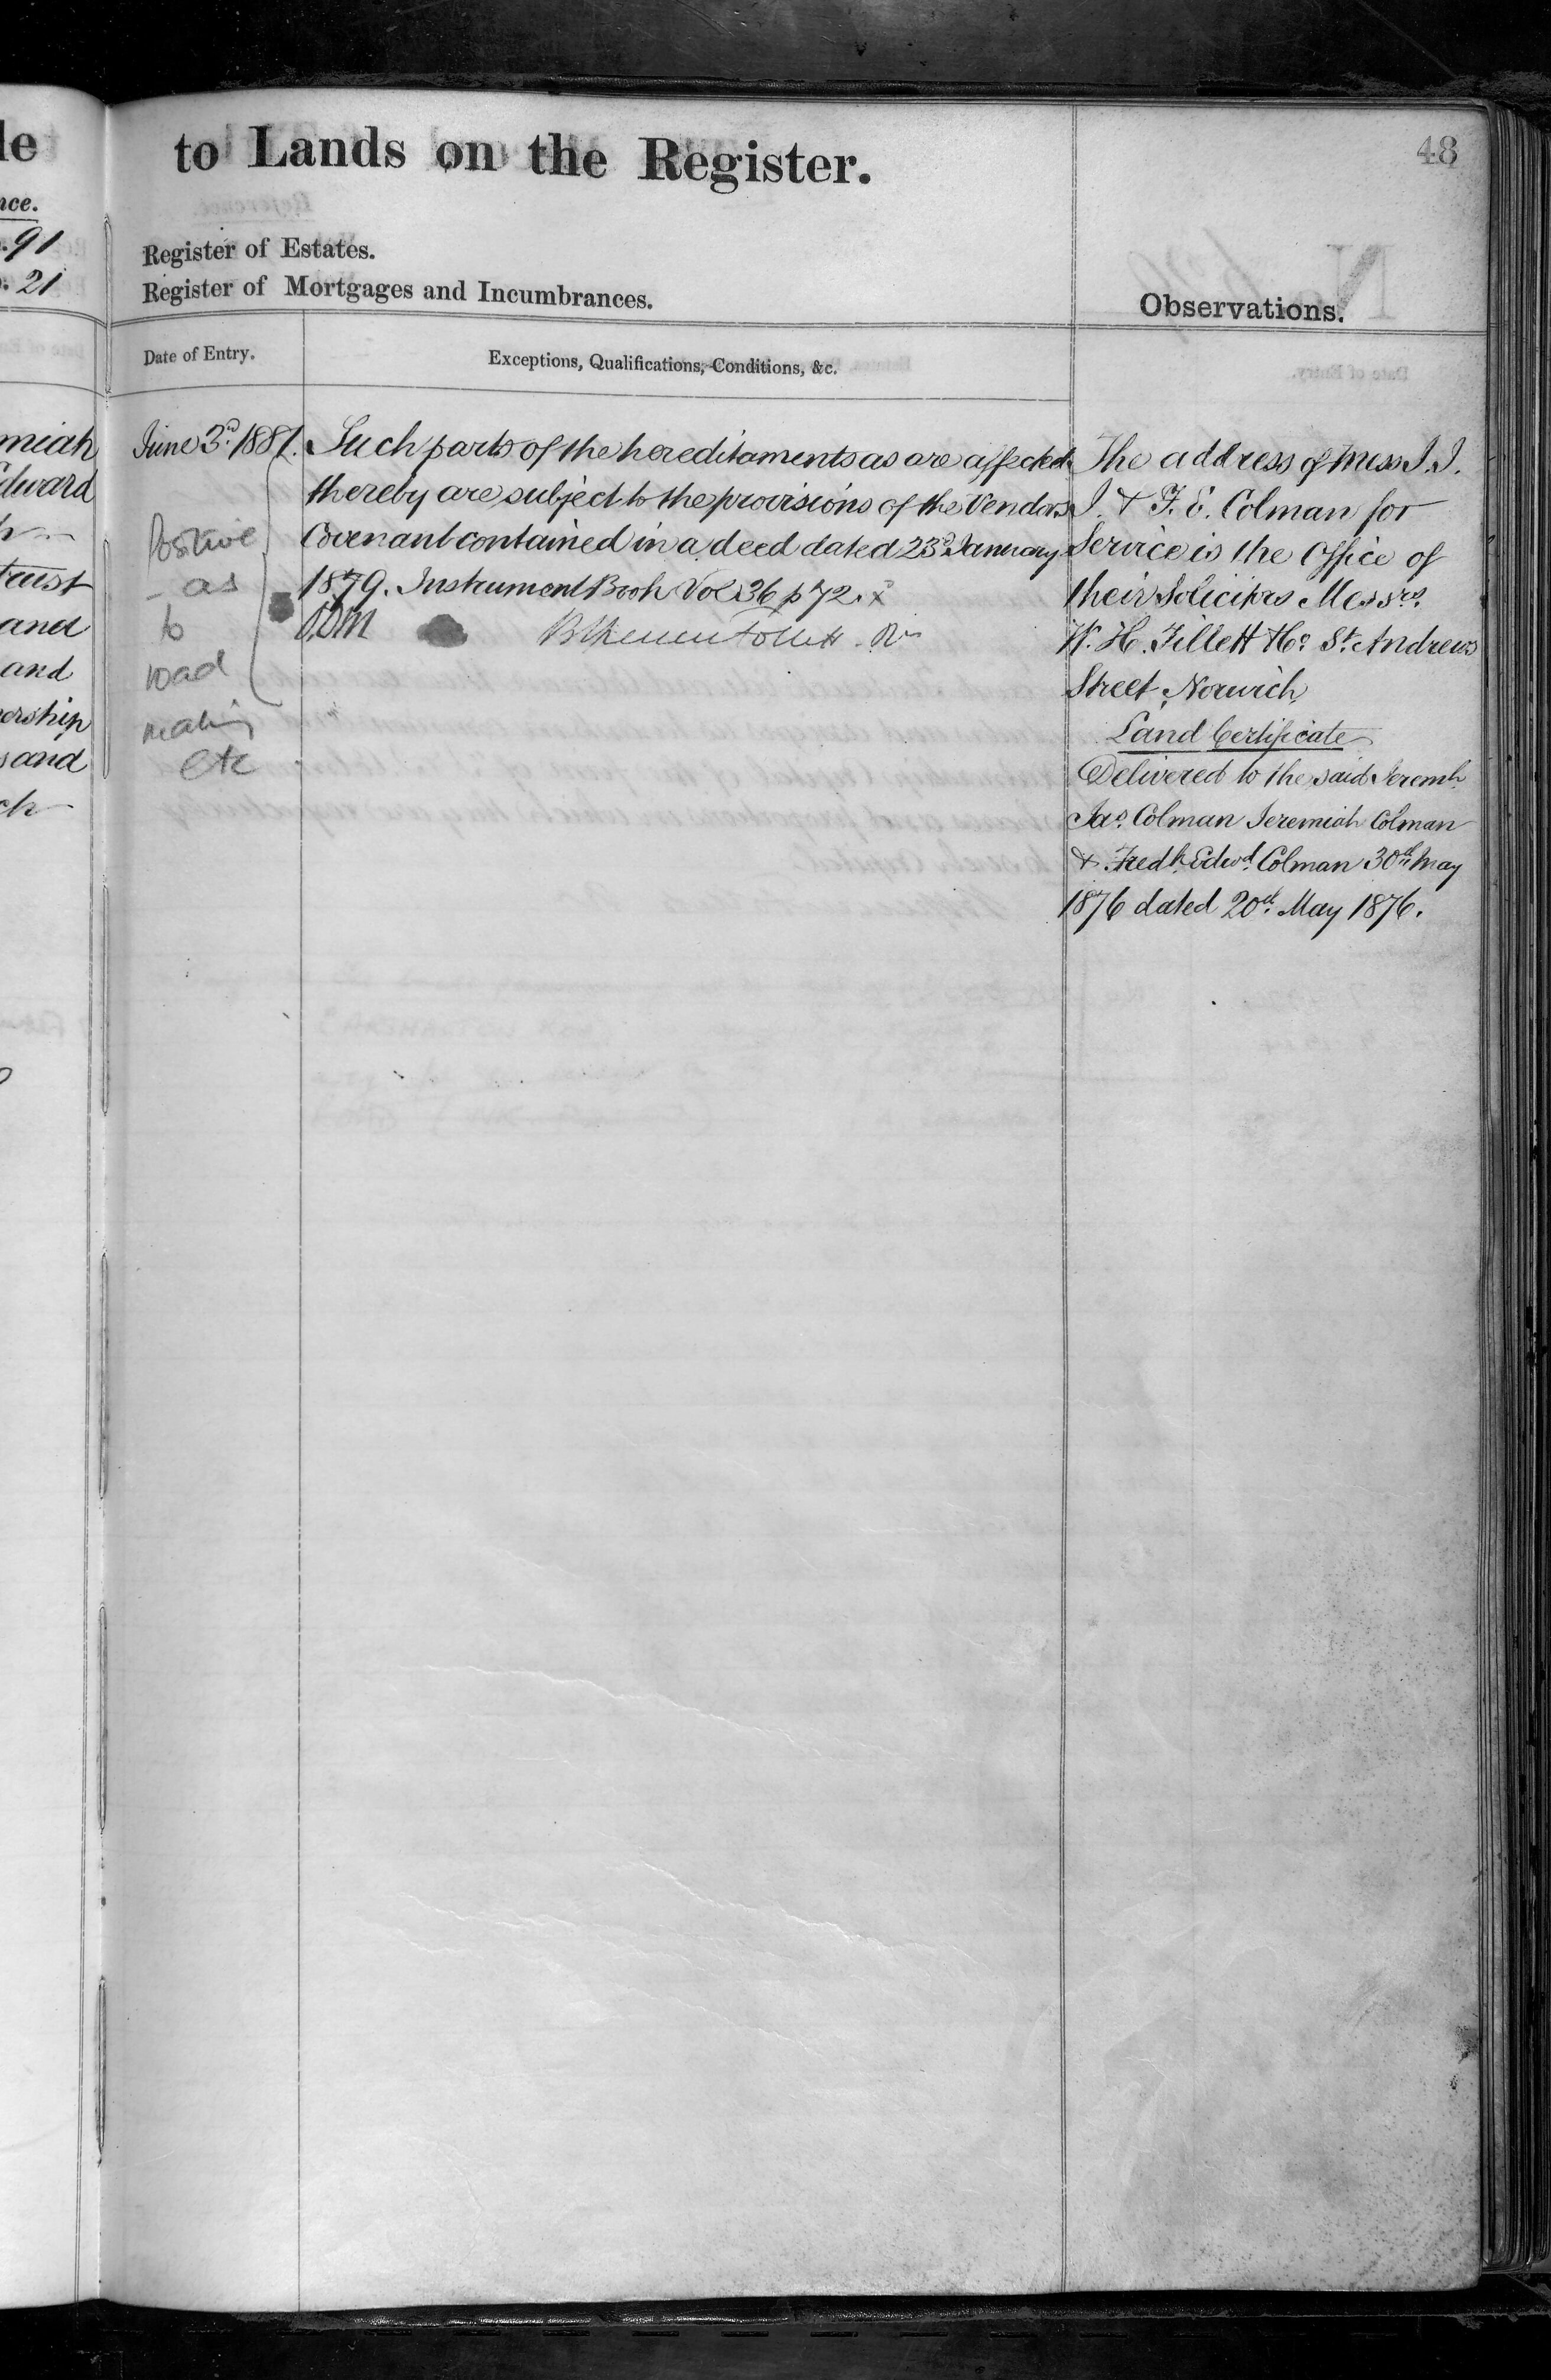 le
to Lands on the Register.
48
nce.
.91
. 21
Register of Estates.
Register of Mortgages and Incumbrances.
Observations.
Date of Entry.
Exceptions, Qualifications, Conditions, &c.
June 3d. 1881.
Such parts of the hereditaments as are affected
thereby are subject to the provisions of the Vendors
Covenant contained in a deed dated 23d. January
1879. Instrument Book Vol 36 p 72. x
Positive
- as
to
road
making
etc
The address of Mess J. J.
J. & F. E. Colman for
Service is the Office of
their Solicitors Messrs.
W. H. Tillett & Co. St. Andrews
Street, Norwich,
Land Certificate
Delivered to the said Jeremh.
Jas. Colman Jeremiah Colman
& Fredk. Edwd. Colman 30th May
1876 dated 20th May 1876.
miah
dward
trust
and
and
nership
s and